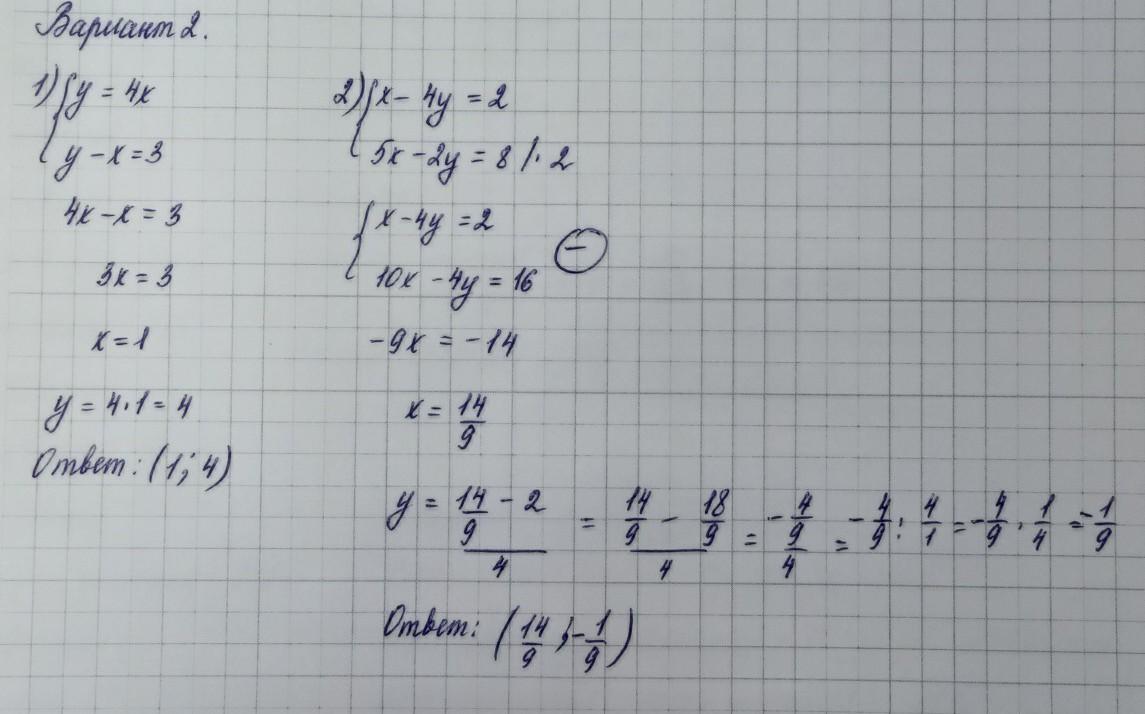 Вариант 2.
1) { y = 4x
y - x = 3
4x - x = 3
3x = 3
x = 1
y = 4 · 1 = 4
Ответ: (1; 4)
2) { x - 4y = 2
5x - 2y = 8 /· 2
{ x - 4y = 2
10x - 4y = 16
−
-9x = -14
x = 14/9
y = (14/9 - 2)/4 = (14/9 - 18/9)/4 = (-4/9)/4 = -4/9 : 4/1 = -4/9 · 1/4 = -1/9
Ответ: (14/9; -1/9)